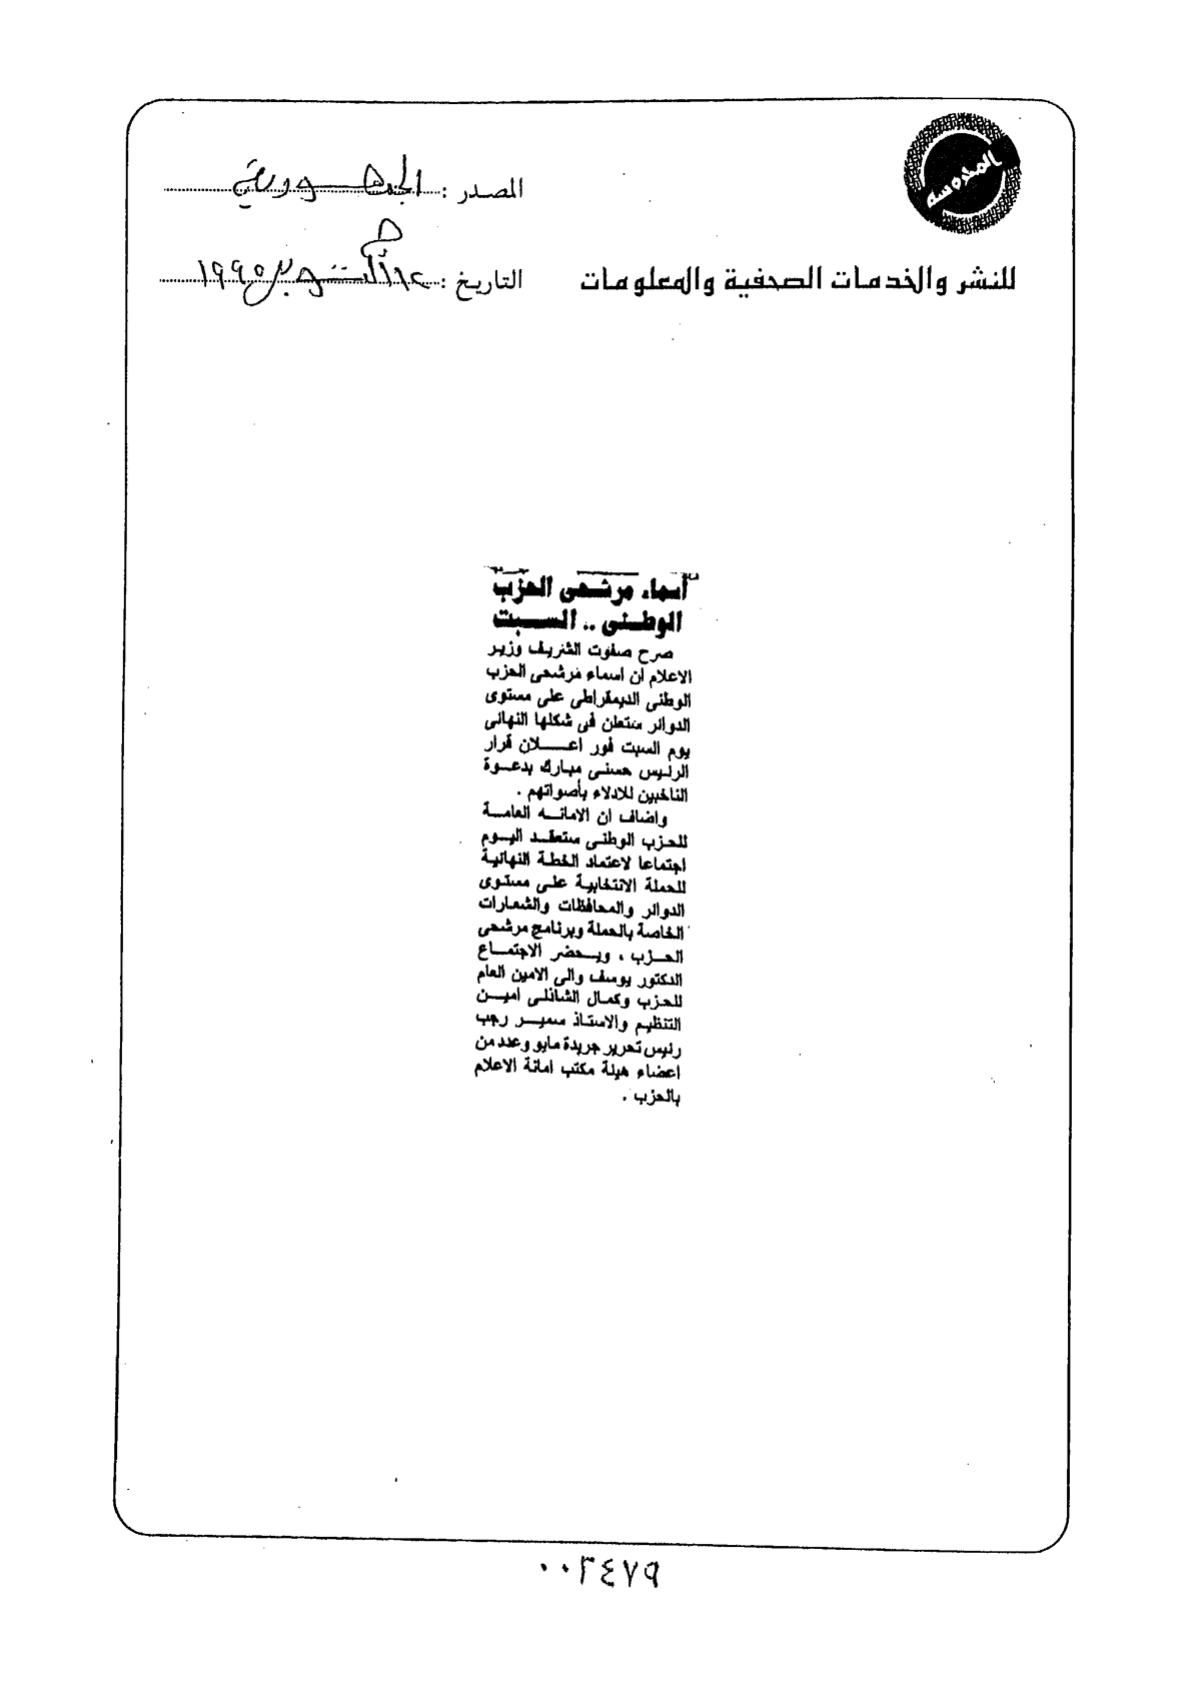 المدوسه
المصدر : الجمهورية
للنشر والخدمات الصحفية والمعلومات
التاريخ : أكتوبر ١٩٩٥
أسماء مرشحى الحزب
الوطنى .. السبت
صرح صفوت الشريف وزير
الاعلام ان اسماء مرشحى الحزب
الوطنى الديمقراطى على مستوى
الدوائر ستعلن فى شكلها النهائى
يوم السبت فور اعلان قرار
الرئيس حسنى مبارك بدعوة
الناخبين للادلاء بأصواتهم .
واضاف ان الامانه العامة
للحزب الوطنى ستعقد اليوم
اجتماعا لاعتماد الخطة النهائية
للحملة الانتخابية على مستوى
الدوائر والمحافظات والشعارات
الخاصة بالحملة وبرنامج مرشحى
الحزب ، ويحضر الاجتماع
الدكتور يوسف والى الامين العام
للحزب وكمال الشاذلى امين
التنظيم والاستاذ سمير رجب
رئيس تحرير جريدة مايو وعدد من
اعضاء هيئة مكتب امانة الاعلام
بالحزب .
٠٠٢٤٧٩